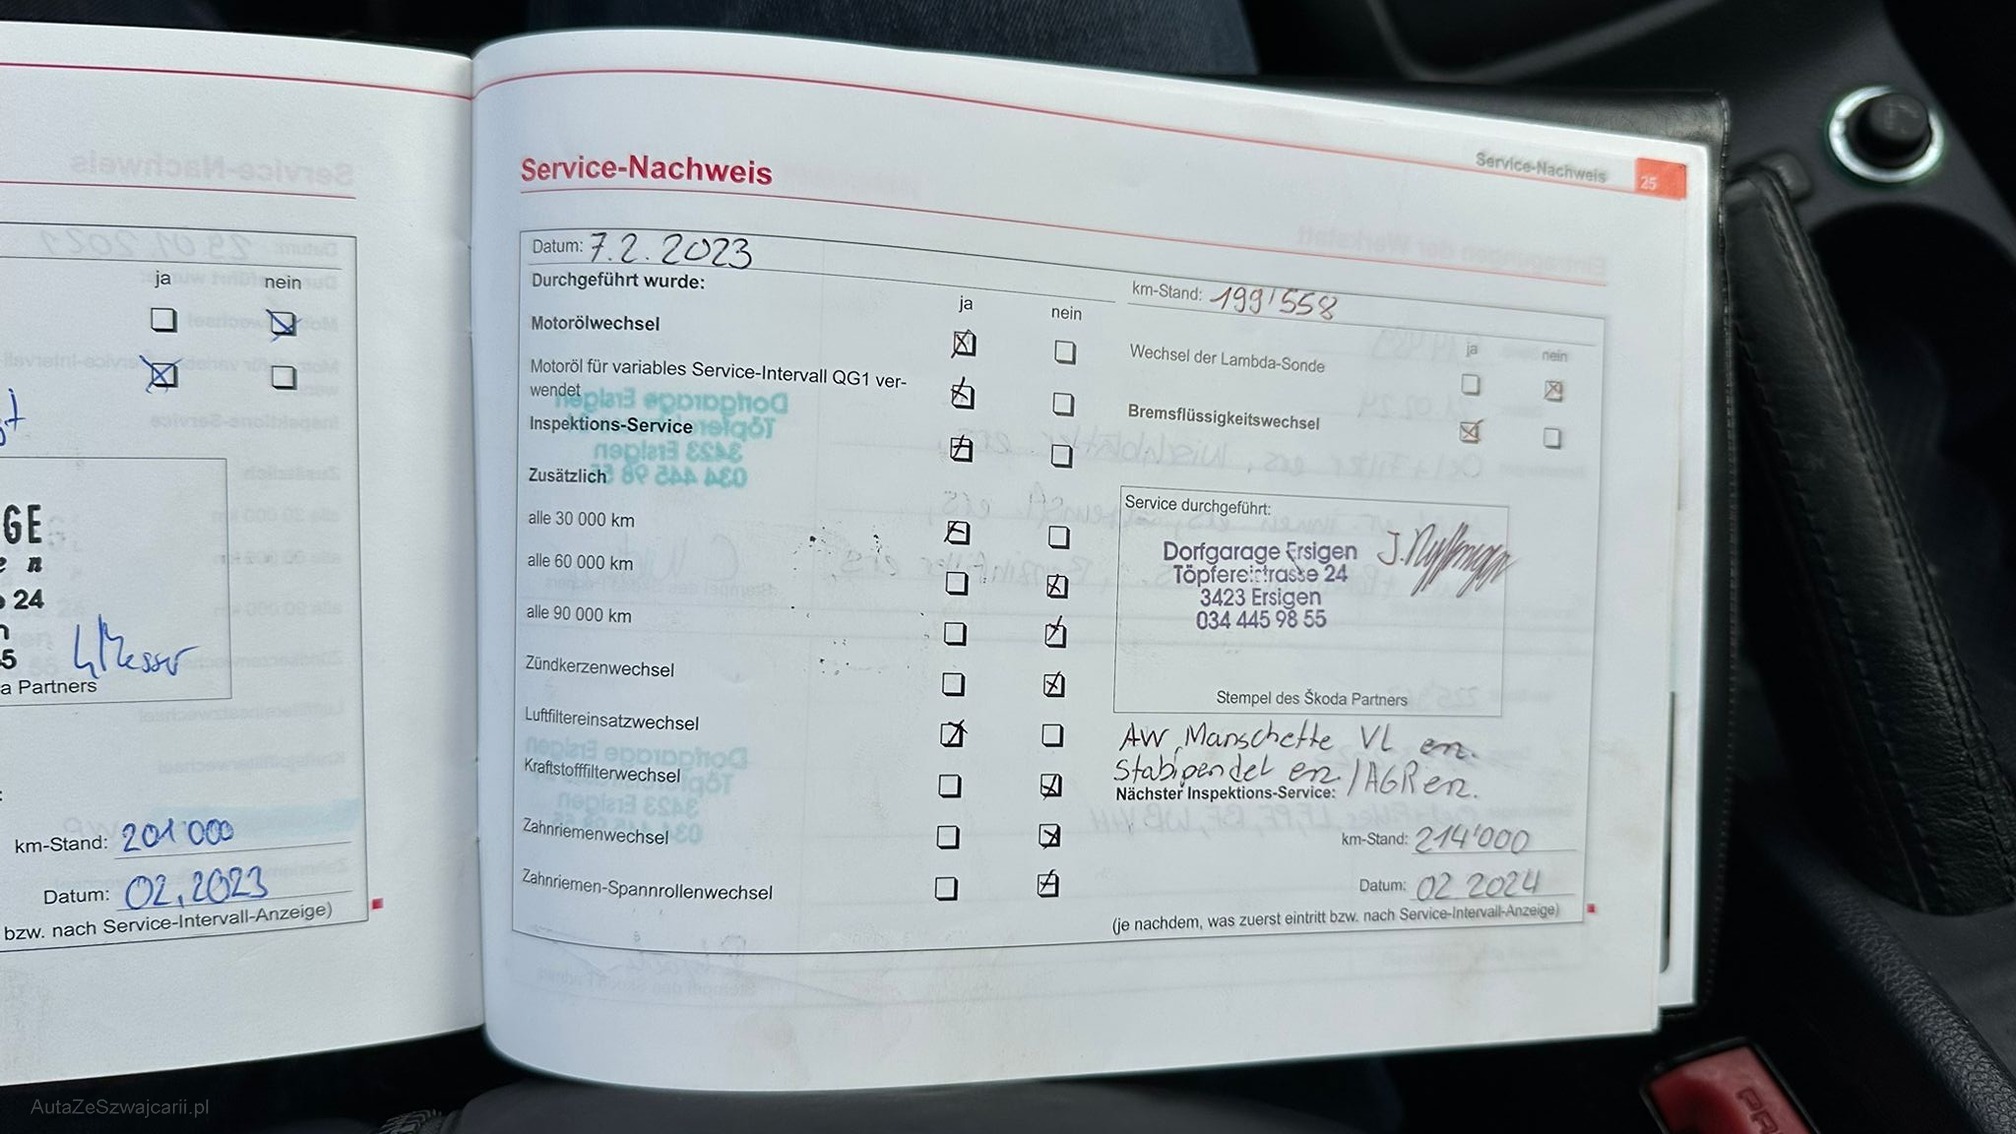 ja nein
GE
24
5
a Partners
km-Stand: 201'000
Datum: 02.2023
bzw. nach Service-Intervall-Anzeige)
Service-Nachweis 25
Service-Nachweis
Datum: 7.2.2023
km-Stand: 199'558
Durchgeführt wurde:
ja nein
Motorölwechsel
Motoröl für variables Service-Intervall QG1 ver-
wendet
Inspektions-Service
Zusätzlich
alle 30 000 km
alle 60 000 km
alle 90 000 km
Zündkerzenwechsel
Luftfiltereinsatzwechsel
Kraftstofffilterwechsel
Zahnriemenwechsel
Zahnriemen-Spannrollenwechsel
ja nein
Wechsel der Lambda-Sonde
Bremsflüssigkeitswechsel
Service durchgeführt:
Dorfgarage Ersigen
Töpfereistrasse 24
3423 Ersigen
034 445 98 55
Stempel des Škoda Partners
AW, Manschette VL en.
Stabipendel en. / AGR en.
Nächster Inspektions-Service:
km-Stand: 214'000
Datum: 02 2024
(je nachdem, was zuerst eintritt bzw. nach Service-Intervall-Anzeige)
AutaZeSzwajcarii.pl